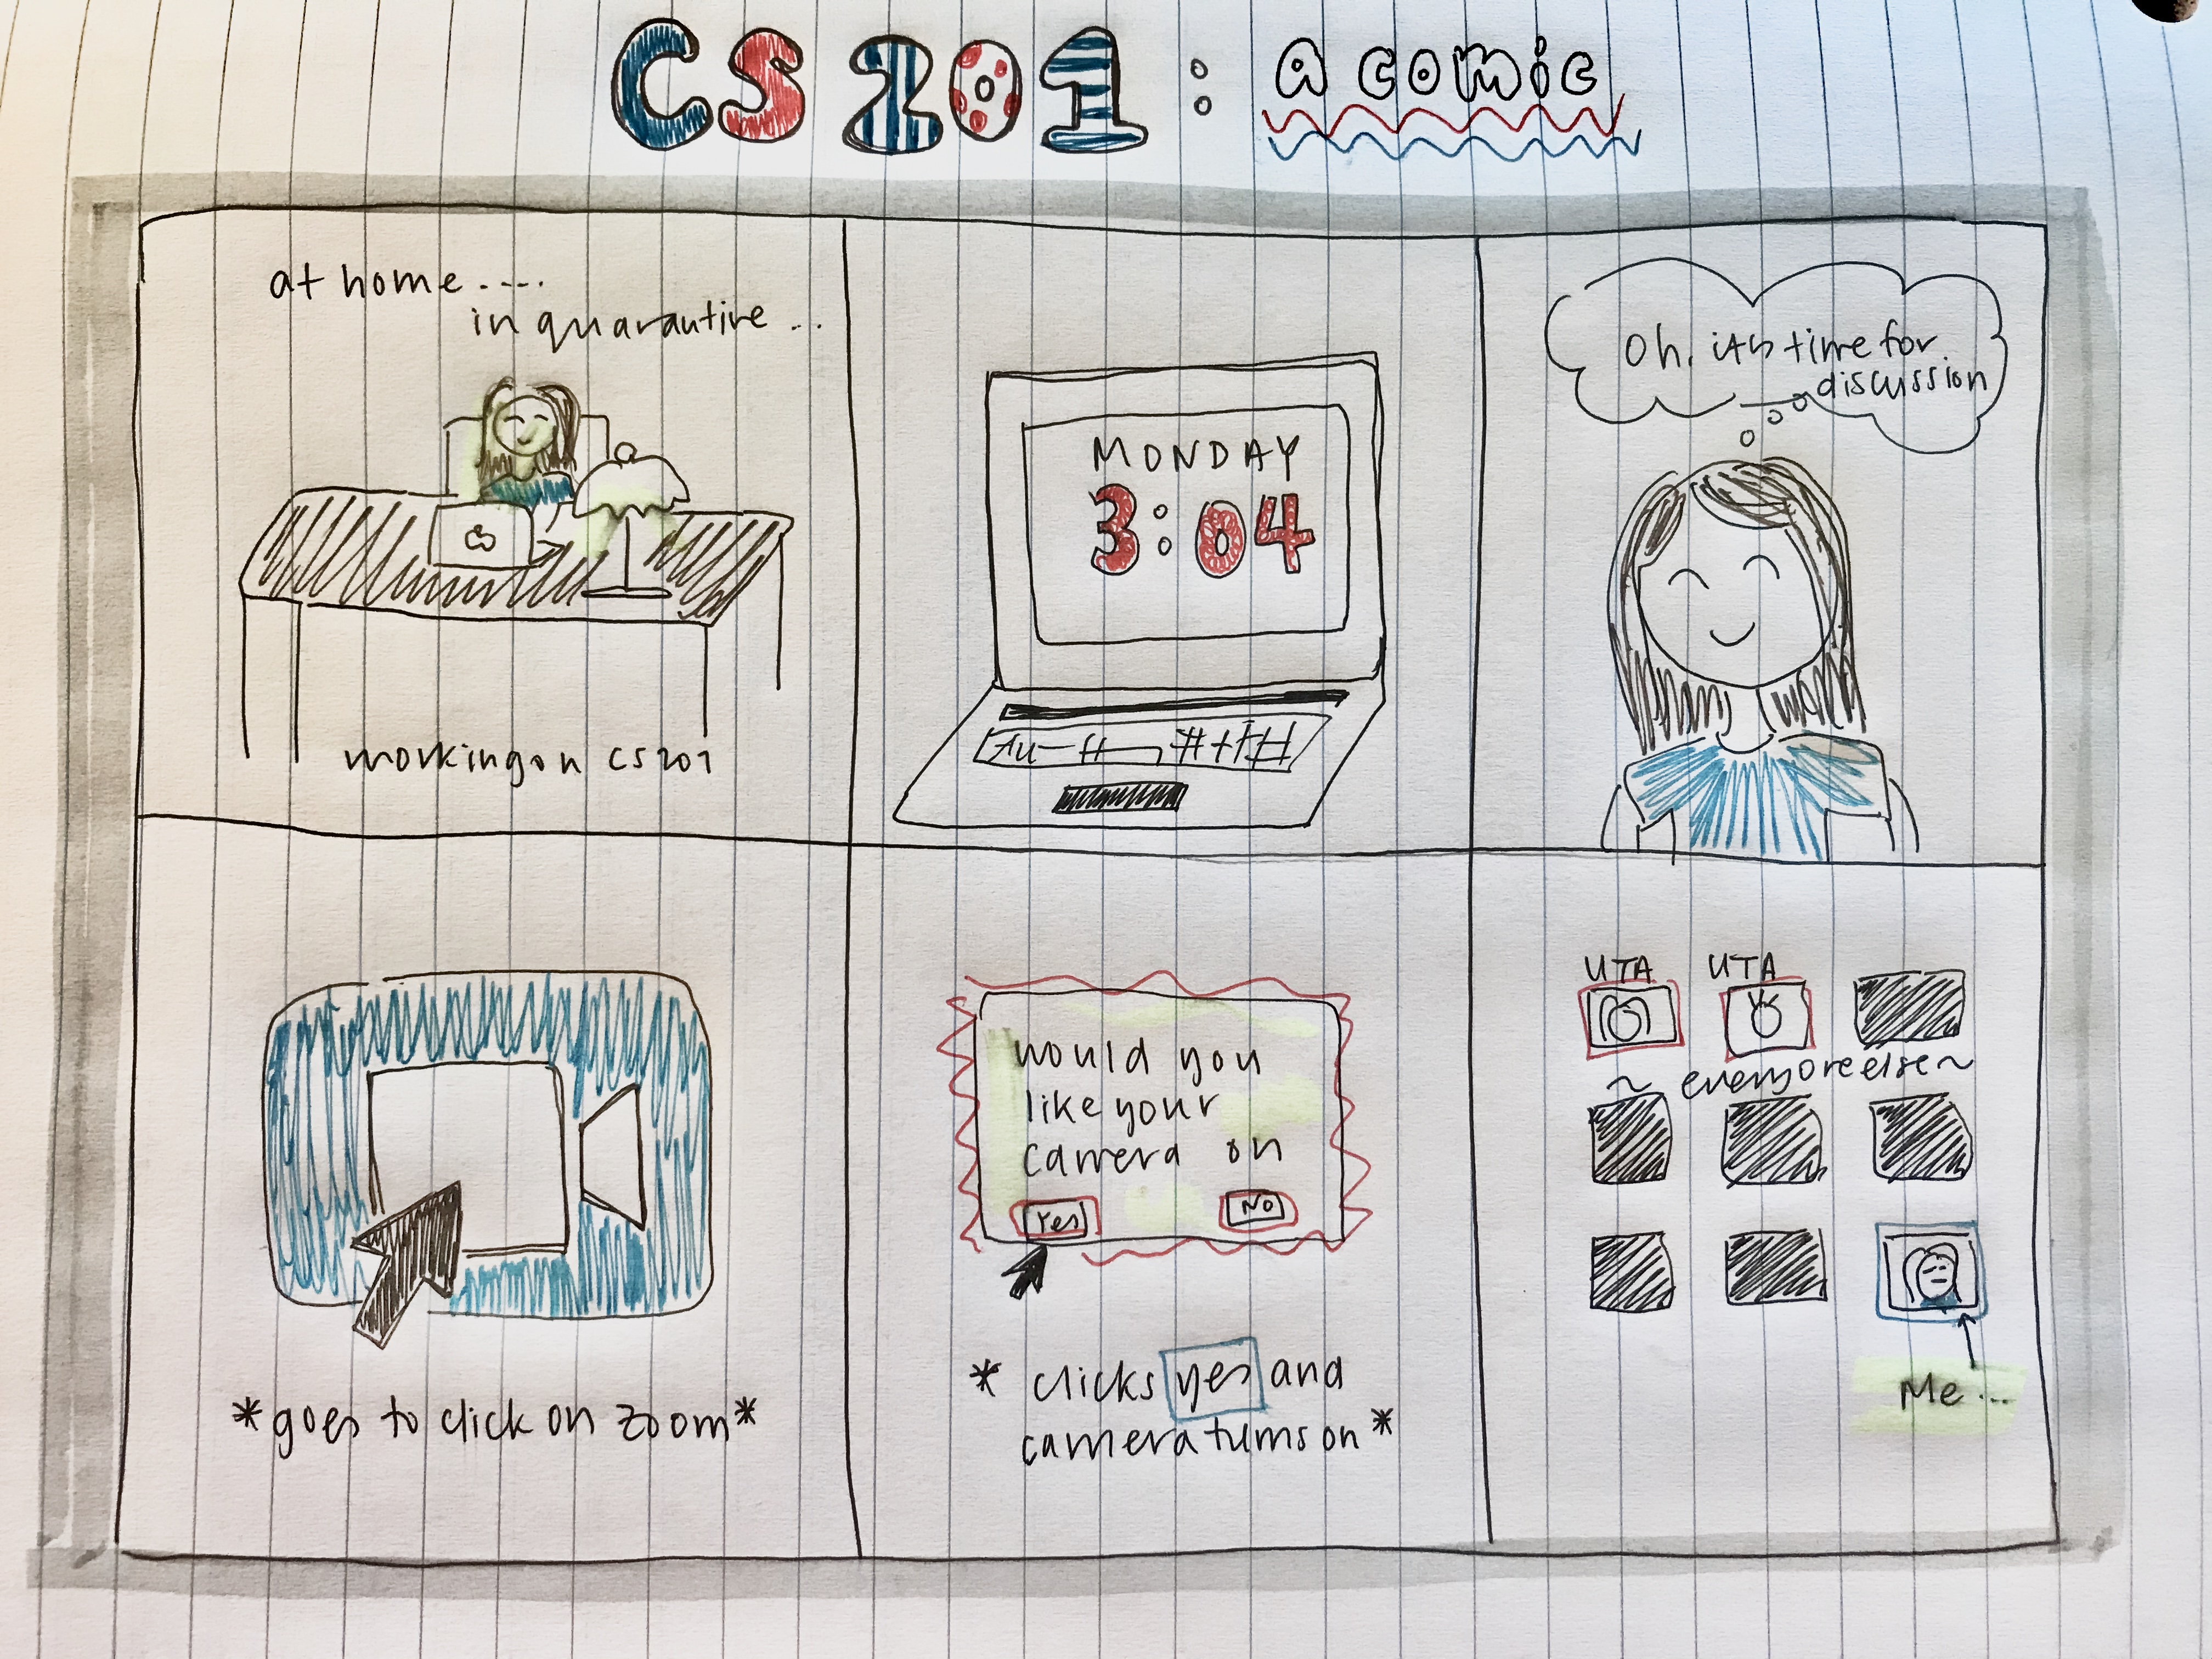 CS 201 : a comic
at home....
in quarantine ..
working on CS201
MONDAY
3:04
Oh, its time for
discussion
*goes to click on zoom*
would you
like your
camera on
Yes No
* clicks yes and
camera turns on *
UTA UTA
~ everyone else ~
Me ...